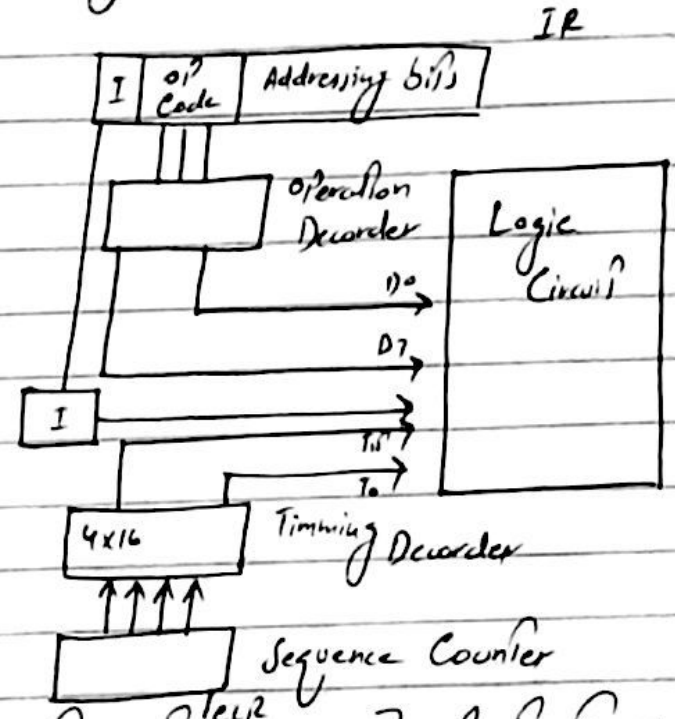 IR
I OP Code Addressing bits
Operation
Decorder
Logic
Circuit
D0
D7
I
T15
T0
4x16
Timming
Decorder
Sequence Counter